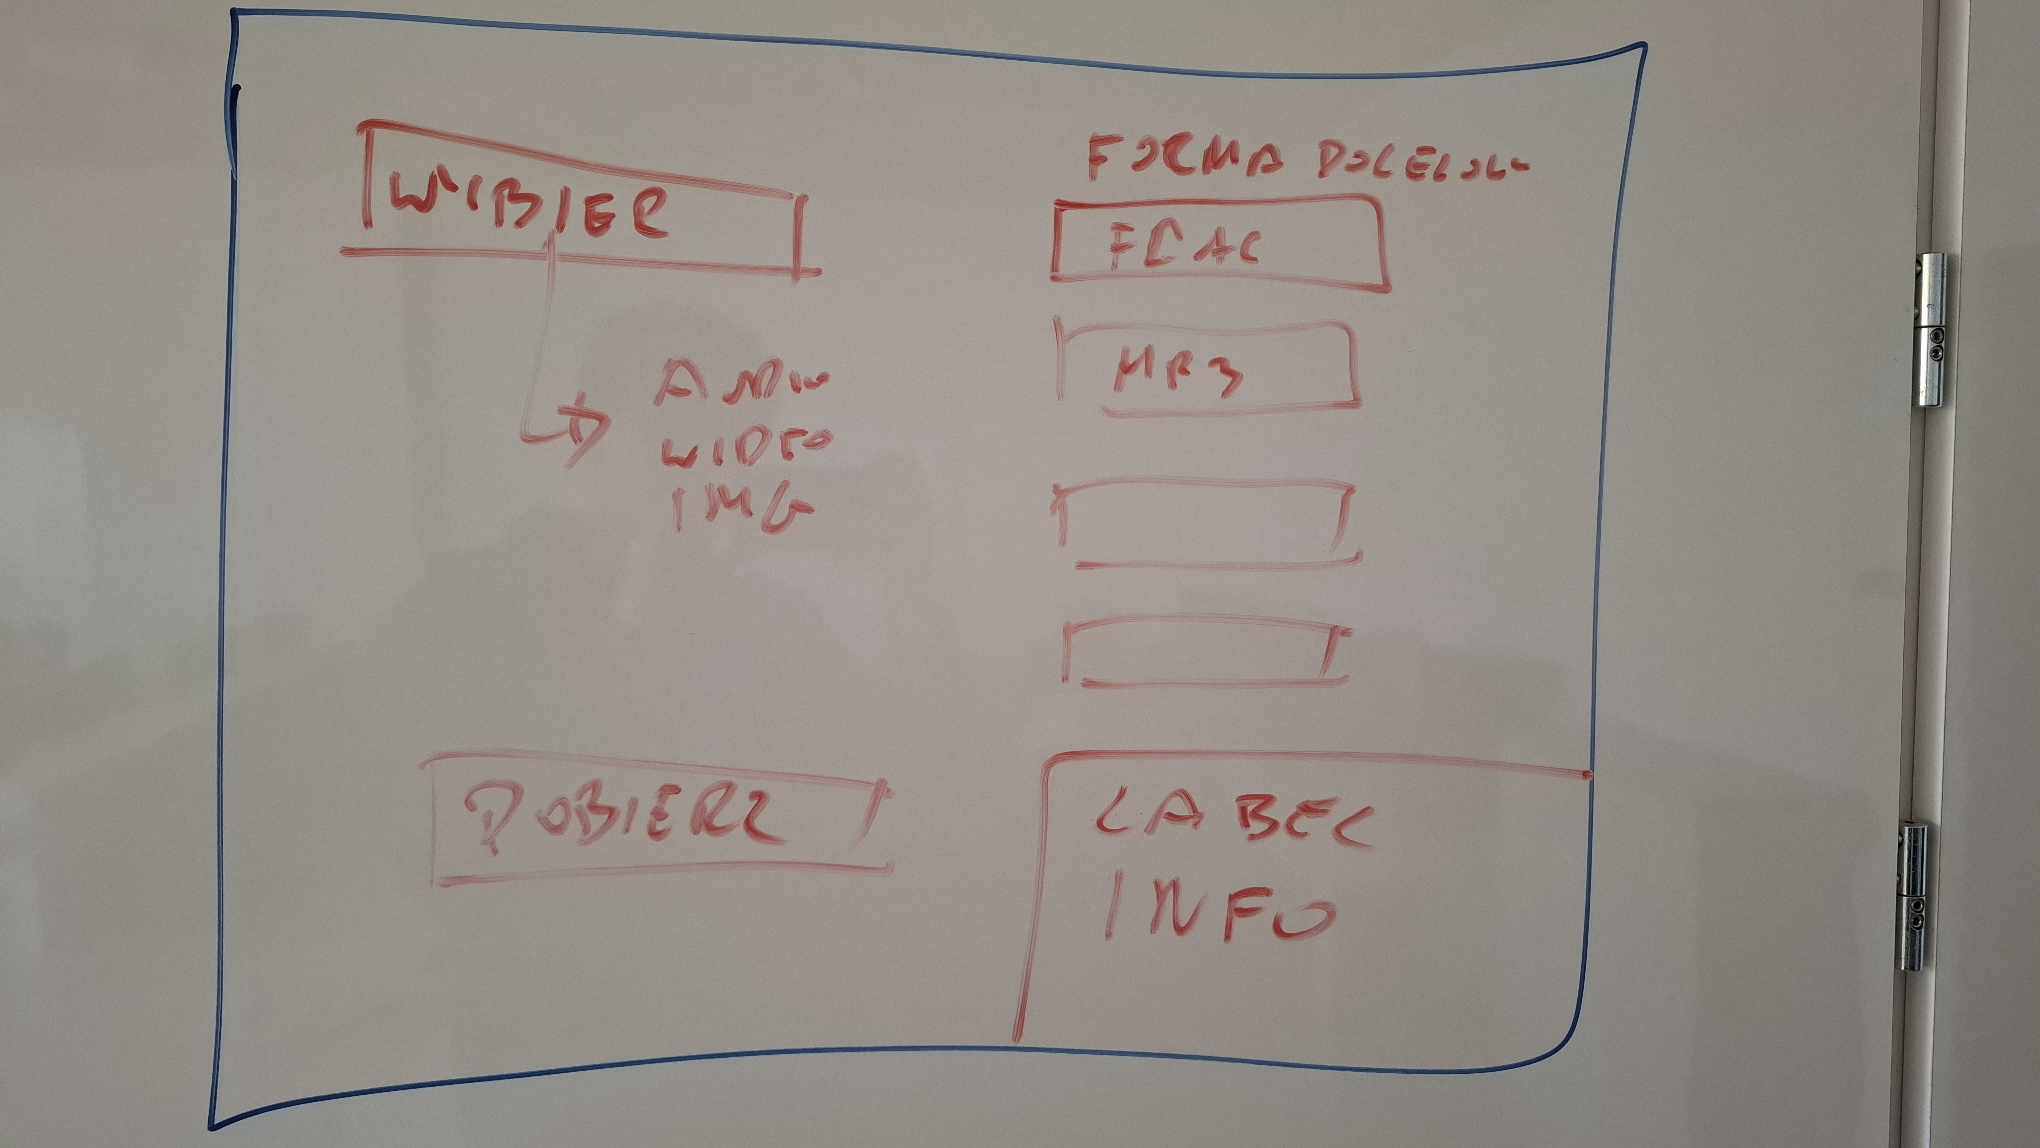 WIBIER
AUDIO
WIDEO
IMG
POBIERZ
FORMA DOCELOWA
FLAC
MP3
LABEL
INFO